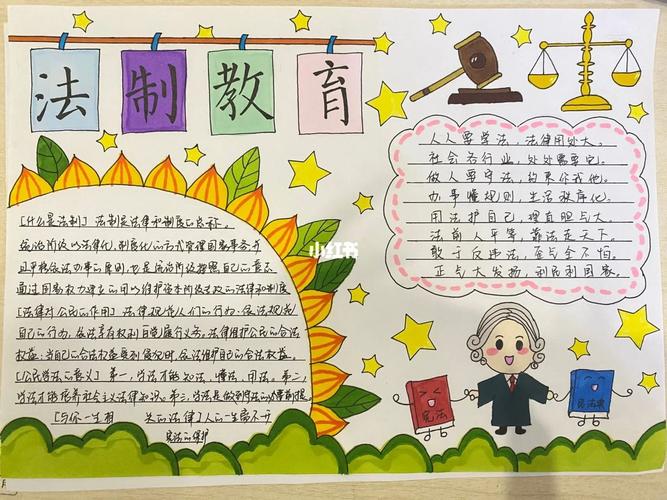 法制教育
人人要学法，法律用处大。
社会各行业，处处需要它。
做人要守法，约束你我他。
办事懂规则，生活秩序化。
用法护自己，理直胆气大。
法前人平等，靠法走天下。
敢于反违法，歪气全不怕。
正气大发扬，利民利国家。
[什么是法制] 法制是法律和制度的总称。
统治阶级以法律化、制度化的方式管理国家事务并
且严格依法办事的原则，也是统治阶级按照自己的意志
通过国家权力建立的用以维护本阶级专政的法律和制度
[法律对公民的作用] 法律规范人们的行为，依法规范
自己的行为，依法享有权利自觉履行义务。法律维护公民的合法
权益，当自己合法权益受到侵犯时，依法维护自己的合法权益。
[公民学法的意义] 第一，学法才能知法、懂法、用法。第二，
学法才能培养社会主义法律意识。第三，学法是做到守法的必要前提。
[与你一生相 关的法律] 人的一生离不开
民法的保护
小红书
民法
民法典